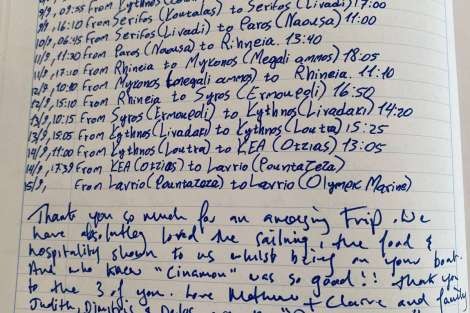 9/9, 09:55 From Kythnos
9/9, 16:10 From Serifos (Koutalas) to Serifos (Livadi) 17:00
10/9, 06:45 From Serifos (Livadi) to Paros (Naousa) 11:00
11/9, 11:30 From Paros (Naousa) to Rihneia. 13:40
11/9, 17:10 From Rhineia to Mykonos (Megali ammos) 18:05
12/9, 10:10 From Mykonos (megali ammos) to Rhineia. 11:10
12/9, 15:10 From Rhineia to Syros (Ermoupoli) 16:50
13/9, 10:15 From Syros (Ermoupoli) to Kythnos (Livadaki) 14:20
13/9, 15:05 From Kythnos (Livadaki) to Kythnos (Loutra) 15:25
14/9, 11:00 From Kythnos (Loutra) to KEA (Otzias) 13:05
14/9, 17:39 From KEA (Otzias) to Lavrio (Pountazeza)
15/9, From Lavrio (Pountazeza) to Lavrio (Olympic Marine)
Thank you so much for an amazing trip. We
have absolutley loved the sailing, the food &
hospitality shown to us whilst being on your boat.
And who knew "Cinamon" was so good!! Thank you
to the 3 of you. Love Mathew + Claire and family
Judith, Dimitris &